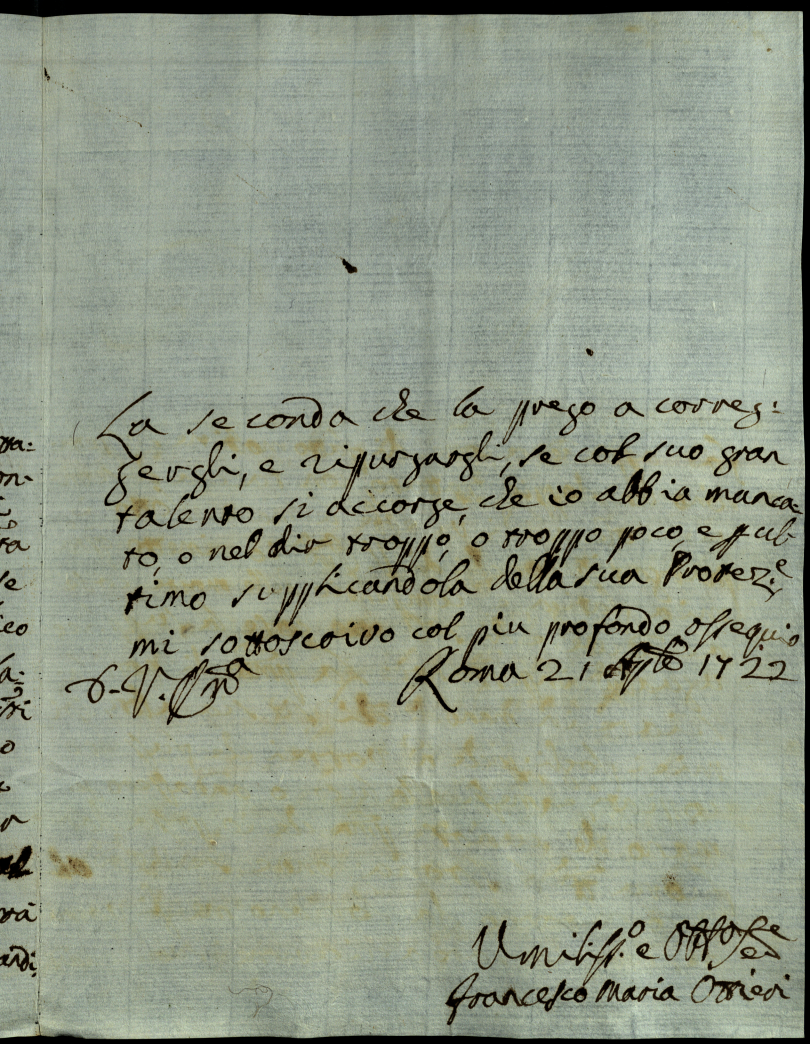 La seconda che la prego a correg:
gergli, e ripurgargli, se col suo gran
talento si accorge, che io abbia manca-
to, o nel dir troppo, o troppo poco, e pul
timo supplicandola della sua Protez.e
mi sottoscrivo col piu profondo ossequio
D. V. Em.a Roma 21 Agto 1722
Umiliss.o e Obb
Francesco Maria Ottieri